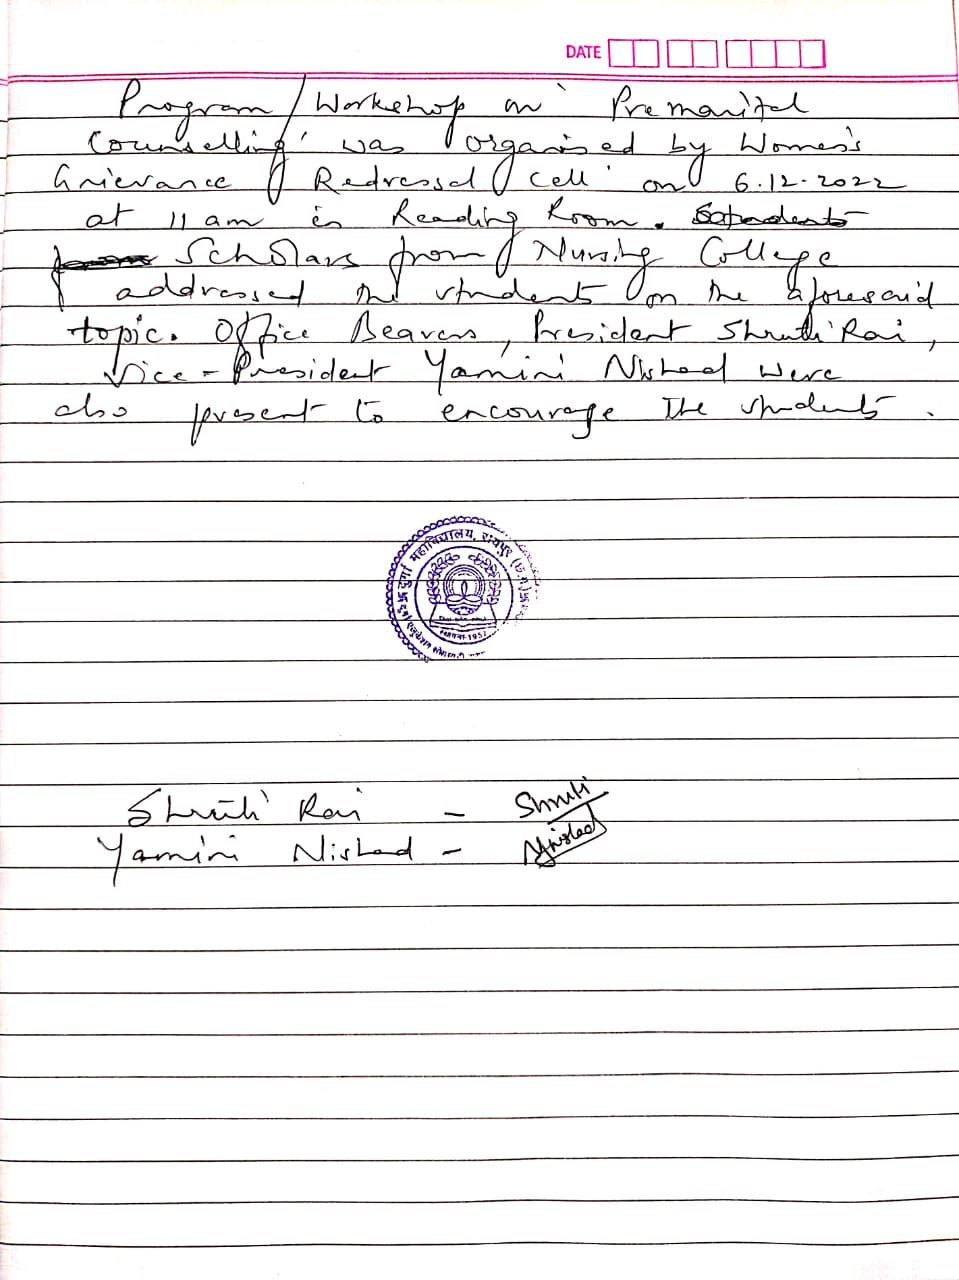 DATE
Program/Workshop on 'Premarital
Counselling' was organised by Women's
Grievance Redressal Cell on 6.12.2022
at 11 am in Reading Room. Students
from Scholars from Nursing College
addressed the students on the aforesaid
topic. Office Bearers, President Shruti Rai,
Vice-President Yamini Nishad were
also present to encourage the students.
दुर्गा महाविद्यालय, रायपुर (छ.ग.)
स्थापना-1957
Shruti Rai - Shruti
Yamini Nishad - YNishad